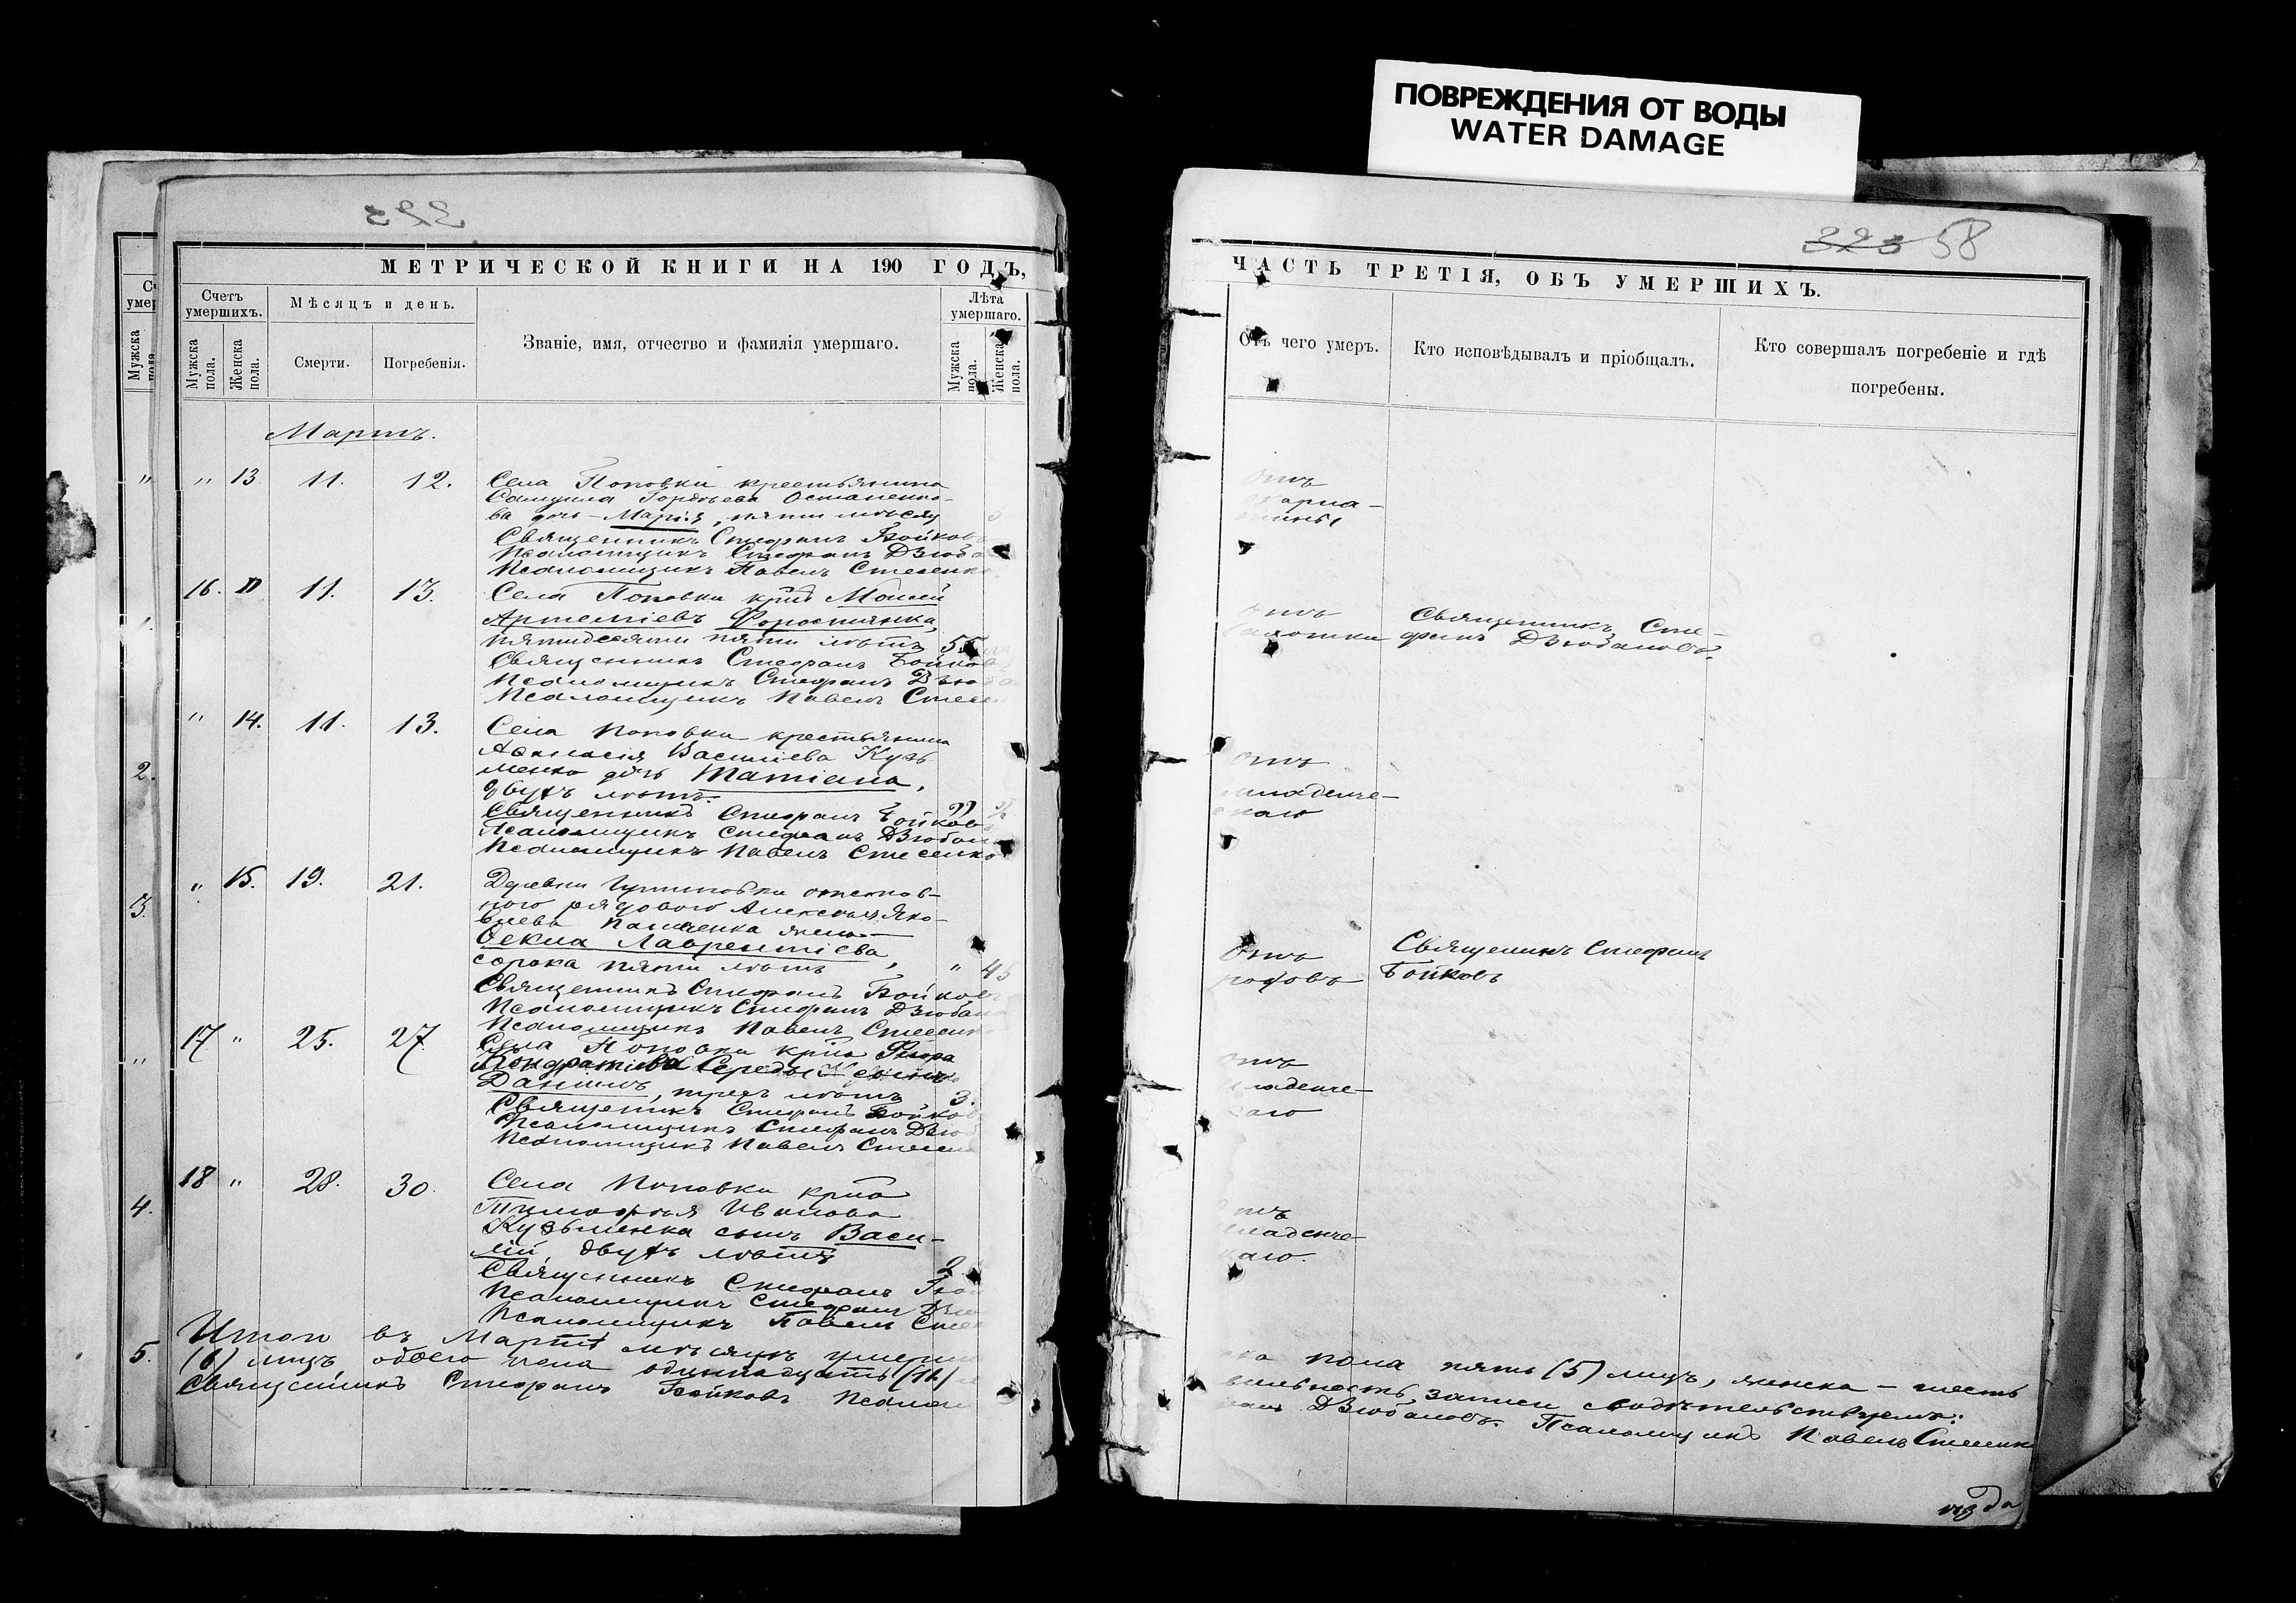 ПОВРЕЖДЕНИЯ ОТ ВОДЫ
WATER DAMAGE
322
МЕТРИЧЕСКОЙ КНИГИ НА 190 ГОДЪ,
Счетъ умершихъ.
Мѣсяцъ и день.
Званіе, имя, отчество и фамилія умершаго.
Лѣта умершаго.
Мужска пола.
Женска пола.
Смерти.
Погребенія.
Мужска пола.
Женска пола.
Мартъ.
" 13 11. 12.
Села Поповки крестьянина
Самуила Гордѣева Остапенко-
ва дочь - Марія, пяти мѣсяц
Священникъ Стефанъ Бойковъ
Псаломщикъ Стефанъ Дзюба
Псаломщикъ Павелъ Стесенко
16. " 11. 13.
Села Поповки крнъ Моисей
Артеміевъ Форостянка,
пятидесяти пяти лѣтъ 55
Священникъ Стефанъ Бойковъ
Псаломщикъ Стефанъ Дзюба
Псаломщикъ Павелъ Стесе
" 14. 11. 13.
Села Поповки крестьянина
Аѳанасія Василіева Кузь
менко дочь Татіана,
двухъ лѣтъ.
Священникъ Стефанъ Бойковъ
Псаломщикъ Стефанъ Дзюбан
Псаломщикъ Павелъ Стесенко
" 15. 19. 21.
Деревни отстав-
ного рядового Алексѣя Яко-
влева жена
Ѳекла Лаврентіева,
сорока пяти лѣтъ " 45
Священникъ Стефанъ Бойковъ
Псаломщикъ Стефанъ Дзюбан
Псаломщикъ Павелъ Стесенк
17 " 25. 27.
Села Поповки крна Ѳеодора
Кондратіева Середы сынъ
Даніилъ, трехъ лѣтъ 3.
Священникъ Стефанъ Бойков
Псаломщикъ Стефанъ Дзюб
Псаломщикъ Павелъ Стесен
18 " 28. 30.
Села Поповки крна
Тимофея Иванова
Кузьменка сынъ Васи-
лій, двухъ лѣтъ 2
Священникъ Стефанъ Бой
Псаломщикъ Стефанъ Дзю
Псаломщикъ Павелъ Стес
Итого въ Мартѣ мѣсяцѣ умерш
(6) лицъ обоего пола одиннадцать (11)
Священникъ Стефанъ Бойковъ Псалом
2.
3.
4.
5.
323 58
ЧАСТЬ ТРЕТІЯ, ОБЪ УМЕРШИХЪ.
Отъ чего умеръ.
Кто исповѣдывалъ и пріобщалъ.
Кто совершалъ погребеніе и гдѣ погребены.
Отъ
Отъ
Священникъ Сте-
фанъ Дзюбановъ.
Отъ
младенче-
скаго
Отъ
родовъ
Священникъ Стефанъ
Бойковъ
Отъ
младенче-
скаго
Отъ
младенче-
скаго.
пола пять (5) лицъ, женска - шесть
записи свидѣтельствуемъ:
Дзюбановъ. Псаломщикъ Павелъ Стесенк